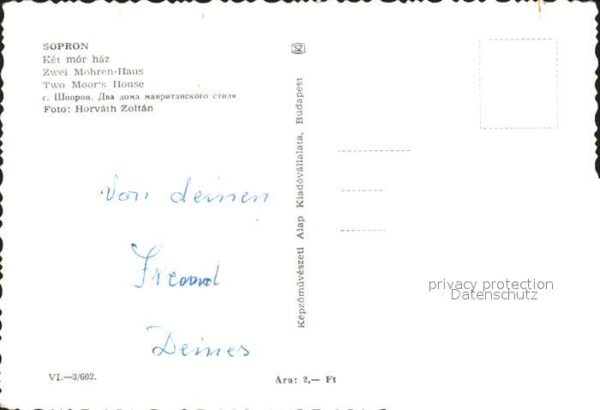 SOPRON
Két mór ház
Zwei Mohren-Haus
Two Moor's House
г. Шопрон. Два дома мавританского стиля
Foto: Horváth Zoltán
Von deinen
Freund
Deines
Képzőművészeti Alap Kiadóvállalata, Budapest
privacy protection
Datenschutz
VI.—3/602.
Ára: 2,— Ft